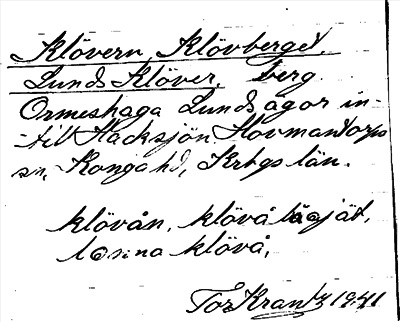 Klövern, Klövberget,
Lunds Klöver, berg.
Ormeshaga Lunds ägor in-
-till Hacksjön. Hovmantorps
sn, Konga hd, Krbgs län.
klövån, klövå
klövå,
Tor Krantz 1941